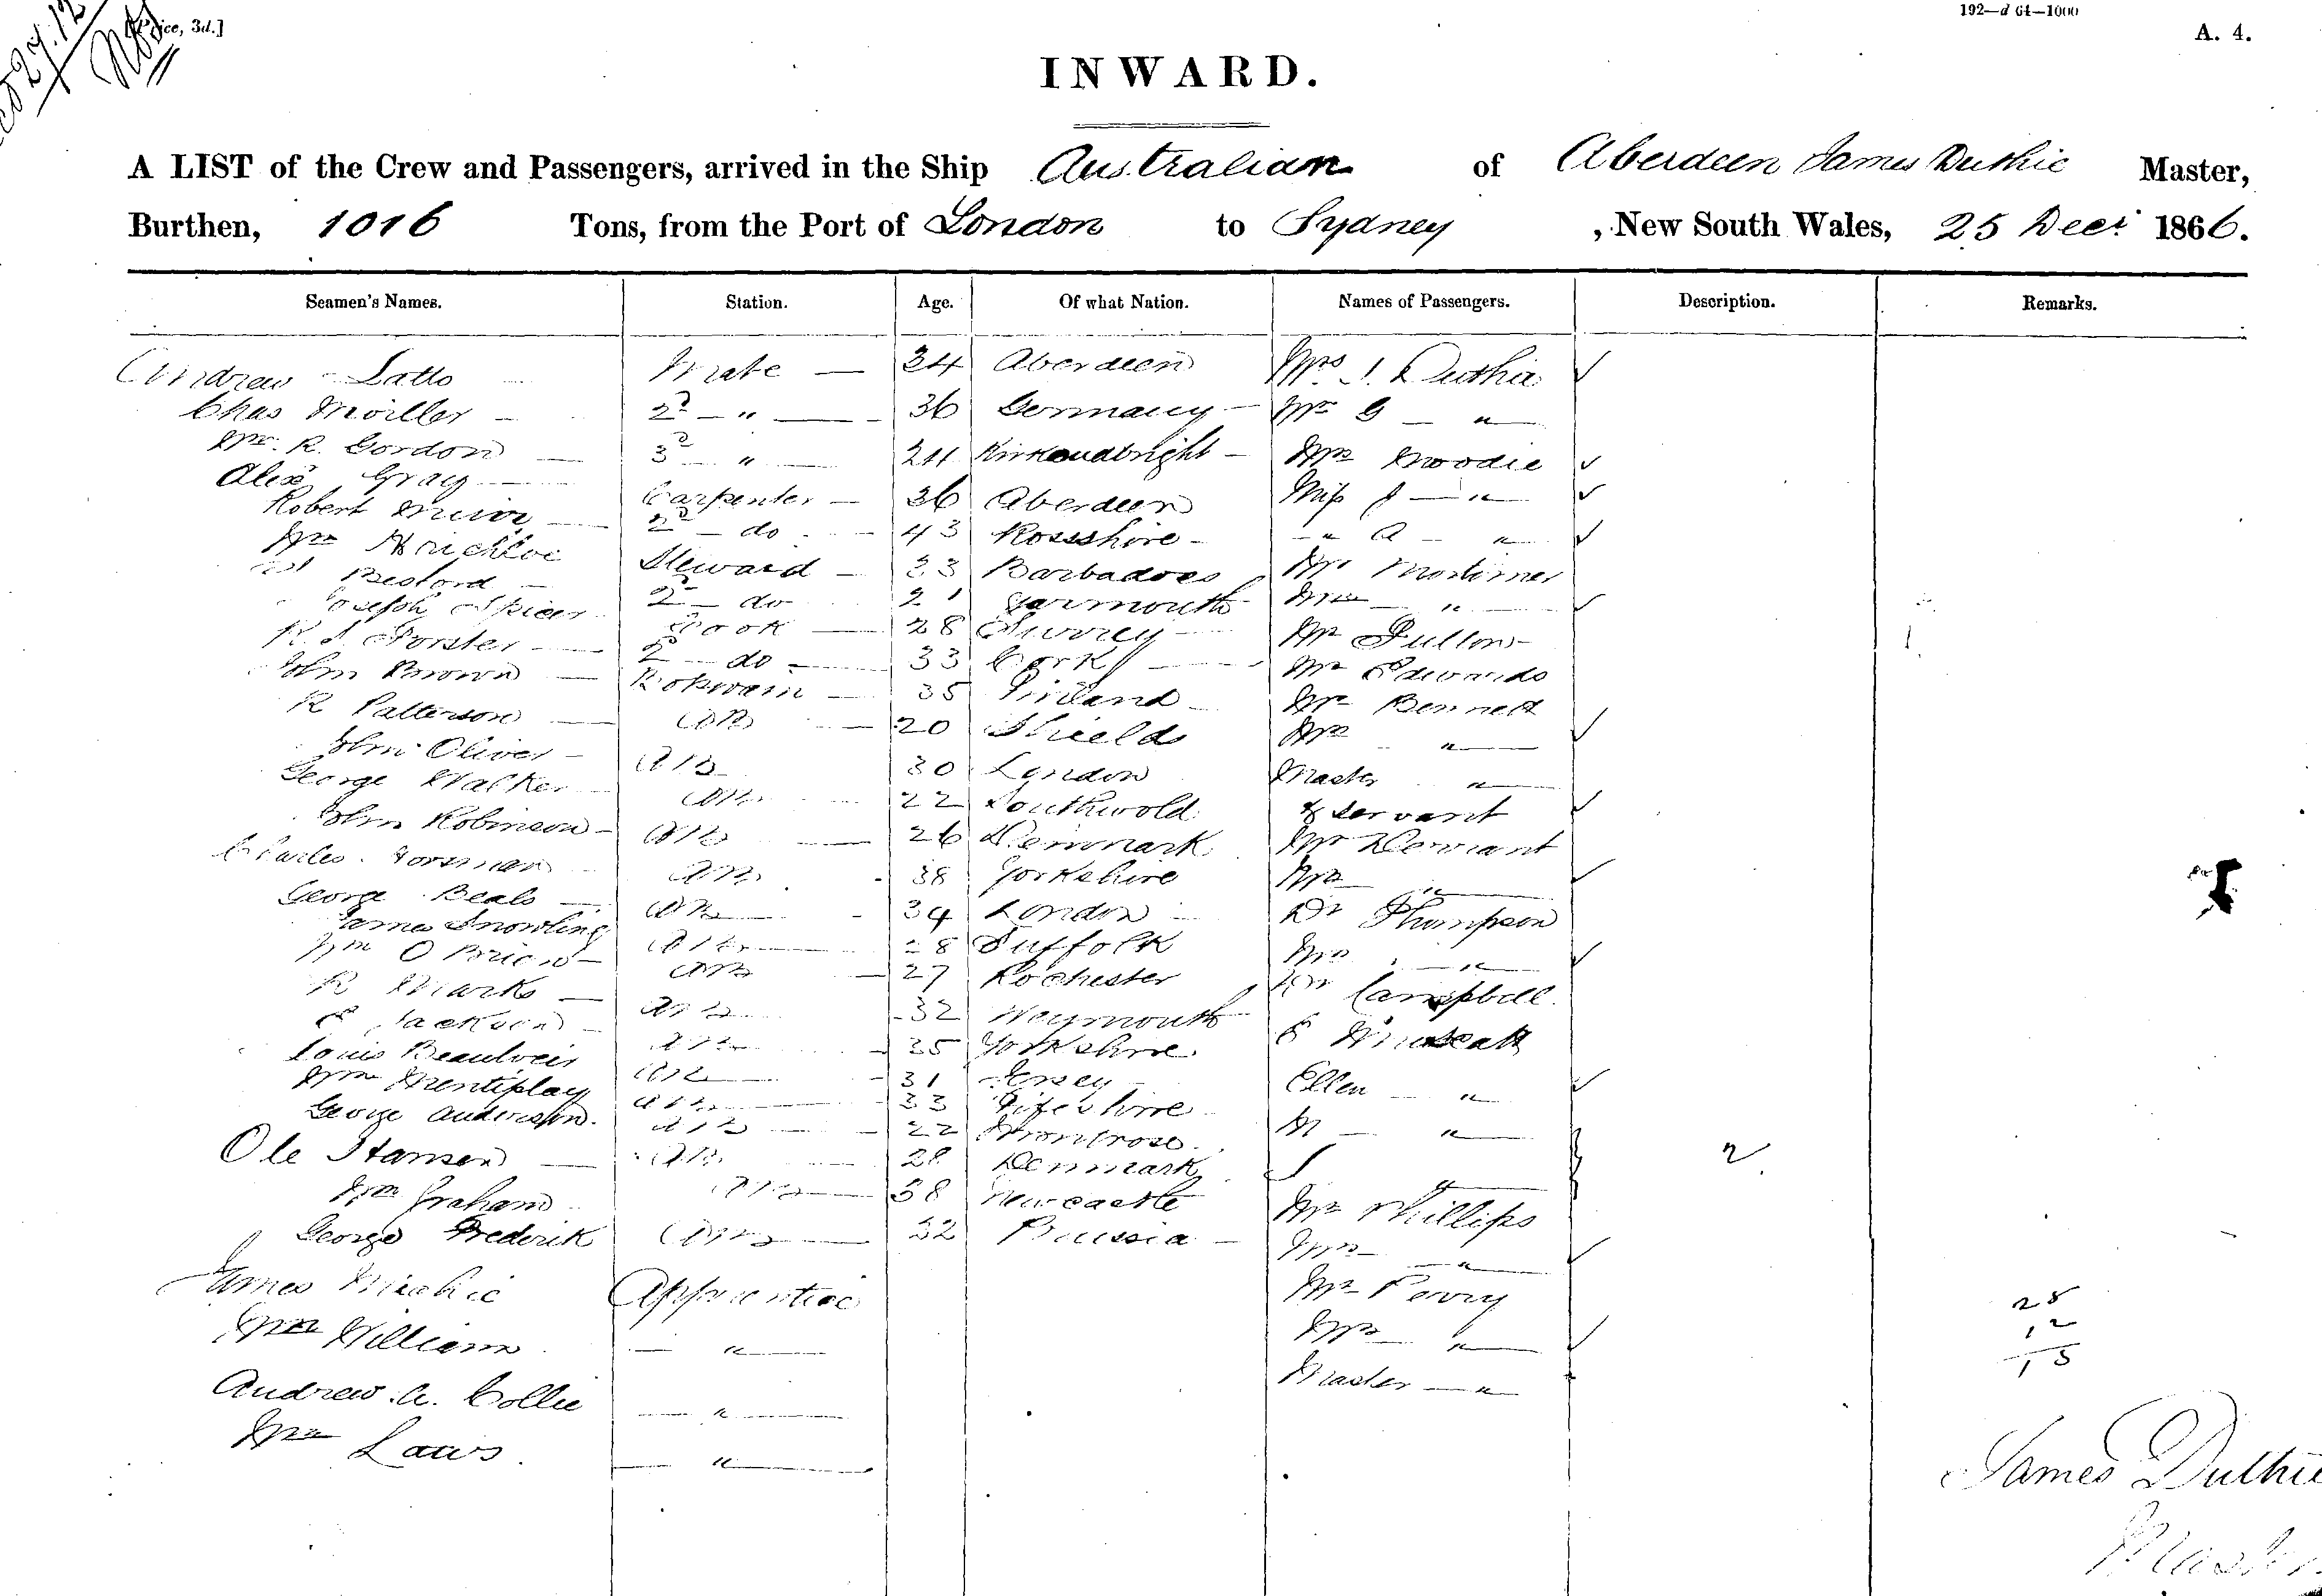 192—d 64—1000
[Price, 3d.] A. 4.
INWARD.
A LIST of the Crew and Passengers, arrived in the Ship Australian of Aberdeen James Duthie Master,
Burthen, 1016 Tons, from the Port of London to Sydney , New South Wales, 25 Decr 1866.
Seamen's Names. Station. Age. Of what Nation. Names of Passengers. Description. Remarks.
Andrew Latto Mate 34 Aberdeen Mrs J. Duthie
Chas Moiller 2d " 36 Germany Mr G "
Wm. R. Gordon 3d " 24 Kirkcudbright Mrs Moodie
Alex Gray Carpenter 36 Aberdeen Miss J "
Robert Munro 2d do 43 Rossshire " A "
Wm Steward 33 Barbadoes Mr Mortimer
2d do 21 Yarmouth Mrs "
Joseph Spicer Cook 28 Surrey Mr
R. J. Forster 2d do 33 Cork Mr Edwards
John Brown Boswain 35 Finland Mr Bennett
R Patterson AB 20 Shields Mrs "
John Oliver AB 30 London Master "
George Walker AB 22 Southwold & servant
John Robinson AB 26 Denmark Mr
Charles AB 38 Yorkshire Mrs "
George Beals AB 34 London Dr Thompson
James Snowling AB 28 Suffolk Mrs "
Wm O Brien AB 27 Rochester Mr Campbell
R Marks AB 32 Weymouth E
Jackson AB 35 Yorkshire Ellen "
Louis AB 31 Jersey M "
Wm Mentiplay AB 33 Fifeshire J "
George Anderson AB 22 Montrose
Ole Hansen AB 28 Denmark 2
Wm Graham AB 38 Newcastle Mr Phillips
George Frederik AB 32 Prussia Mrs "
James Michie Apprentice Mr Perry
Wm William " Mrs "
Andrew A. Collie " Master "
Wm Laws "
28
12
15
James Duthie
Master